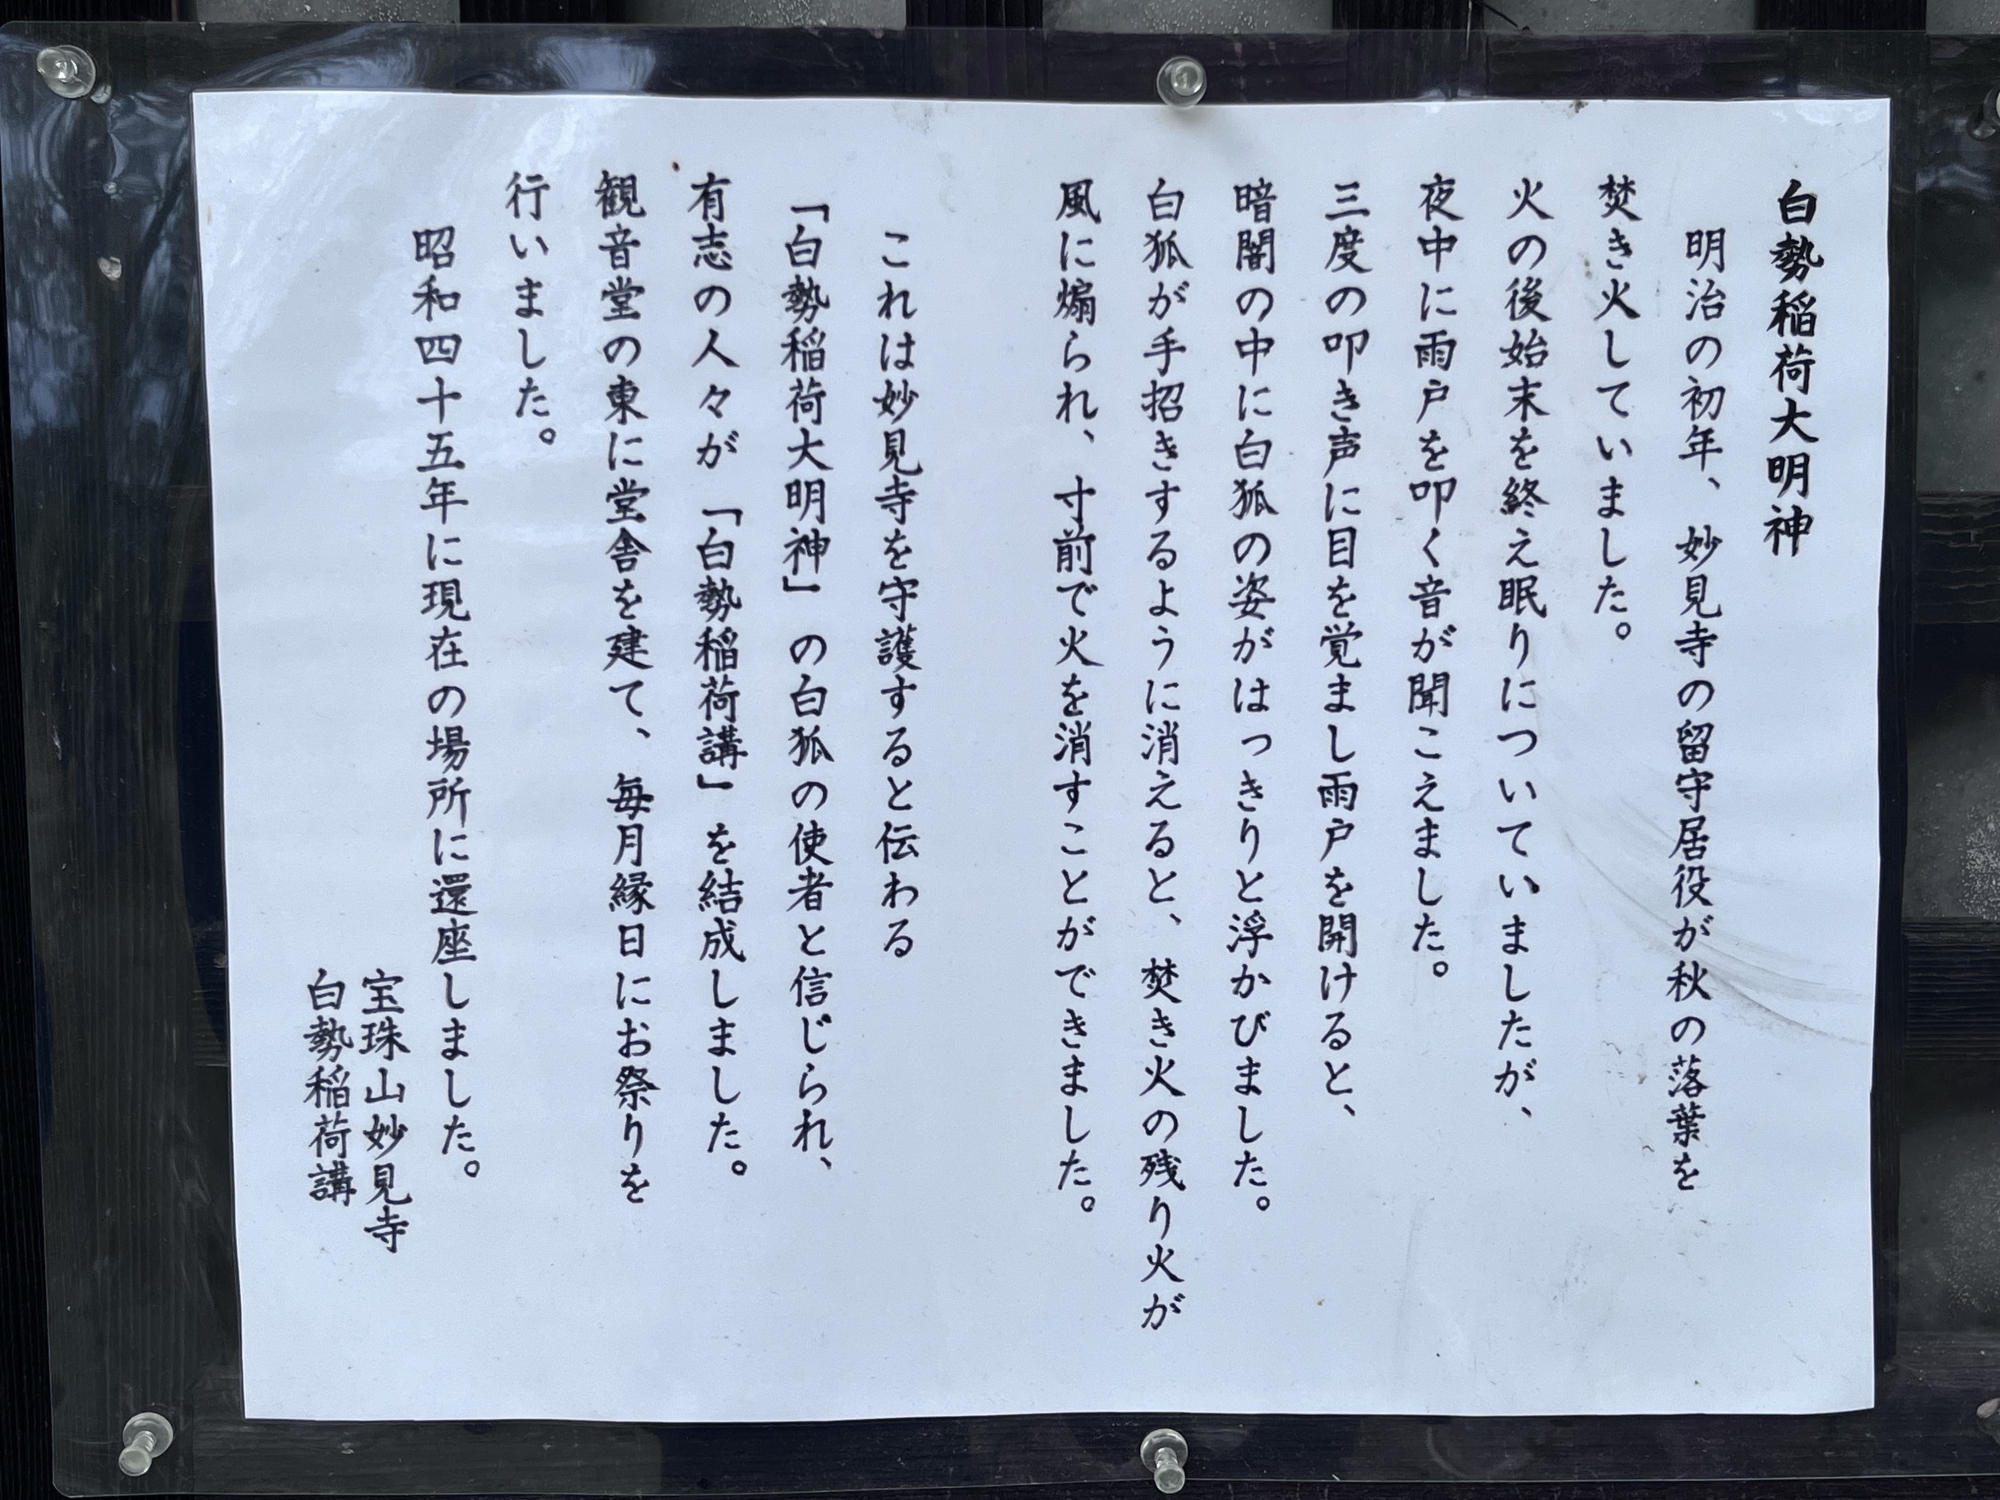 白勢稲荷大明神
明治の初年、妙見寺の留守居役が秋の落葉を
焚き火していました。
火の後始末を終え眠りについていましたが、
夜中に雨戸を叩く音が聞こえました。
三度の叩き声に目を覚まし雨戸を開けると、
暗闇の中に白狐の姿がはっきりと浮かびました。
白狐が手招きするように消えると、焚き火の残り火が
風に煽られ、寸前で火を消すことができました。
これは妙見寺を守護すると伝わる
「白勢稲荷大明神」の白狐の使者と信じられ、
有志の人々が「白勢稲荷講」を結成しました。
観音堂の東に堂舎を建て、毎月縁日にお祭りを
行いました。
昭和四十五年に現在の場所に還座しました。
宝珠山妙見寺
白勢稲荷講